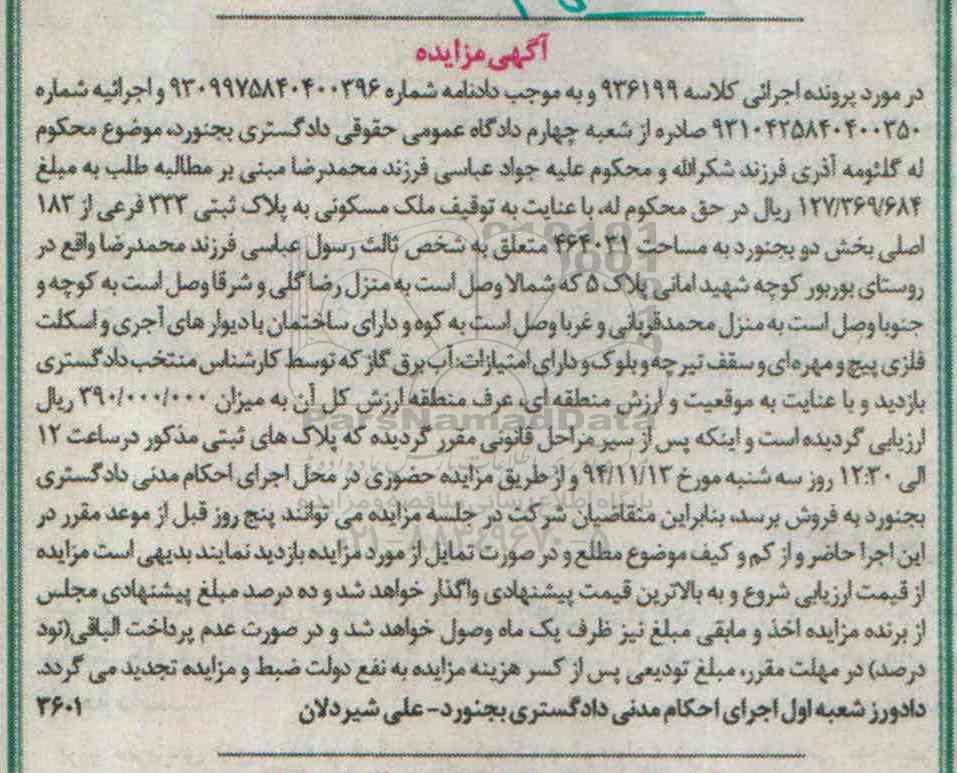 آگهی مزایده
در مورد پرونده اجرائی کلاسه ۹۳۶۱۹۹ و به موجب دادنامه شماره ۹۳۰۹۹۷۵۸۴۰۴۰۰۳۹۶ و اجرائیه شماره
۹۳۱۰۴۲۵۸۴۰۴۰۰۳۵۰ صادره از شعبه چهارم دادگاه عمومی حقوقی دادگستری بجنورد، موضوع محکوم
له گلثومه آذری فرزند شکرالله و محکوم علیه جواد عباسی فرزند محمدرضا مبنی بر مطالبه طلب به مبلغ
۱۲۷/۳۶۹/۶۸۴ ریال در حق محکوم له، با عنایت به توقیف ملک مسکونی به پلاک ثبتی ۳۳۳ فرعی از ۱۸۳
اصلی بخش دو بجنورد به مساحت ۴۶۴۰۳۱ متعلق به شخص ثالث رسول عباسی فرزند محمدرضا واقع در
روستای بوربور کوچه شهید امانی پلاک ۵ که شمالا وصل است به منزل رضا گلی و شرقا وصل است به کوچه و
جنوبا وصل است به منزل محمدقربانی و غربا وصل است به کوه و دارای ساختمان با دیوار های آجری و اسکلت
فلزی پیچ و مهره ای و سقف تیرچه و بلوک و دارای امتیازات: آب برق گاز که توسط کارشناس منتخب دادگستری
بازدید و با عنایت به موقعیت و ارزش منطقه ای، عرف منطقه ارزش کل آن به میزان ۳۹۰/۰۰۰/۰۰۰ ریال
ارزیابی گردیده است و اینکه پس از سیر مراحل قانونی مقرر گردیده که پلاک های ثبتی مذکور درساعت ۱۲
الی ۱۲:۳۰ روز سه شنبه مورخ ۹۴/۱۱/۱۳ و از طریق مزایده حضوری در محل اجرای احکام مدنی دادگستری
بجنورد به فروش برسد، بنابراین متقاضیان شرکت در جلسه مزایده می توانند پنج روز قبل از موعد مقرر در
این اجرا حاضر و از کم و کیف موضوع مطلع و در صورت تمایل از مورد مزایده بازدید نمایند بدیهی است مزایده
از قیمت ارزیابی شروع و به بالاترین قیمت پیشنهادی واگذار خواهد شد و ده درصد مبلغ پیشنهادی مجلس
از برنده مزایده اخذ و مابقی مبلغ نیز ظرف یک ماه وصول خواهد شد و در صورت عدم پرداخت الباقی(نود
درصد) در مهلت مقرر، مبلغ تودیعی پس از کسر هزینه مزایده به نفع دولت ضبط و مزایده تجدید می گردد.
دادورز شعبه اول اجرای احکام مدنی دادگستری بجنورد- علی شیردلان ۳۶۰۱
ParsNamadData
پایگاه اطلاع رسانی مناقصه و مزایده
۰۲۱-۸۸۳۴۹۶۷۰-۵